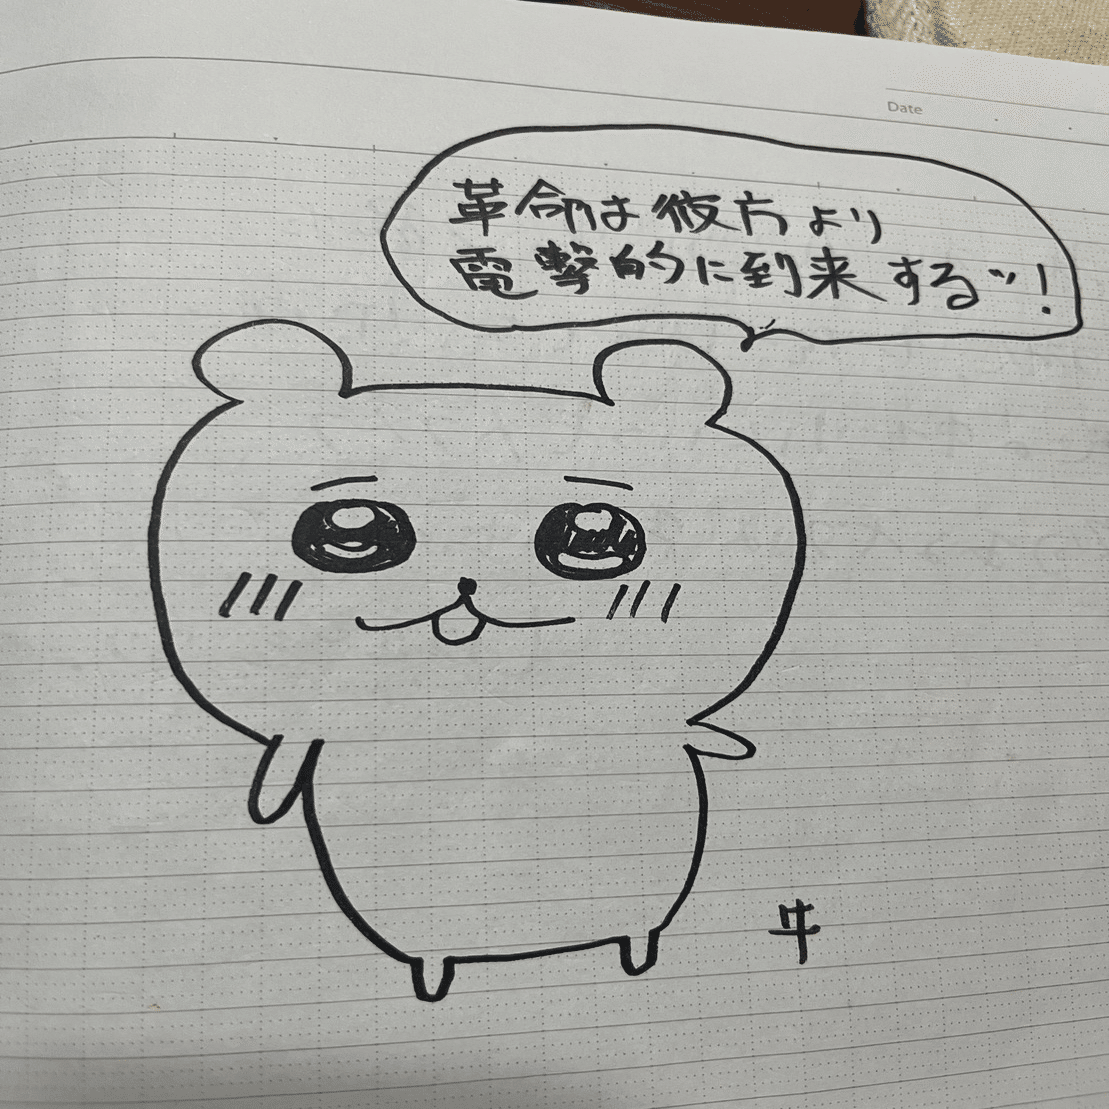 Date
革命は彼方より
電撃的に到来するッ!
牛